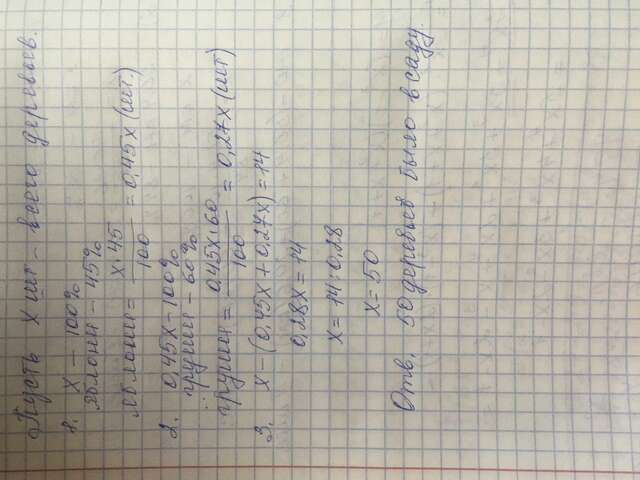 Пусть х шт - всего деревьев.
1. х - 100%
яблони - 45%
яблони = х·45/100 = 0,45х (шт.)
2. 0,45х - 100%
груши - 60%
груши = 0,45х·60/100 = 0,27х (шт)
3. х - (0,45х + 0,27х) = 14
0,28х = 14
х = 14 : 0,28
х = 50
Отв. 50 деревьев было в саду.